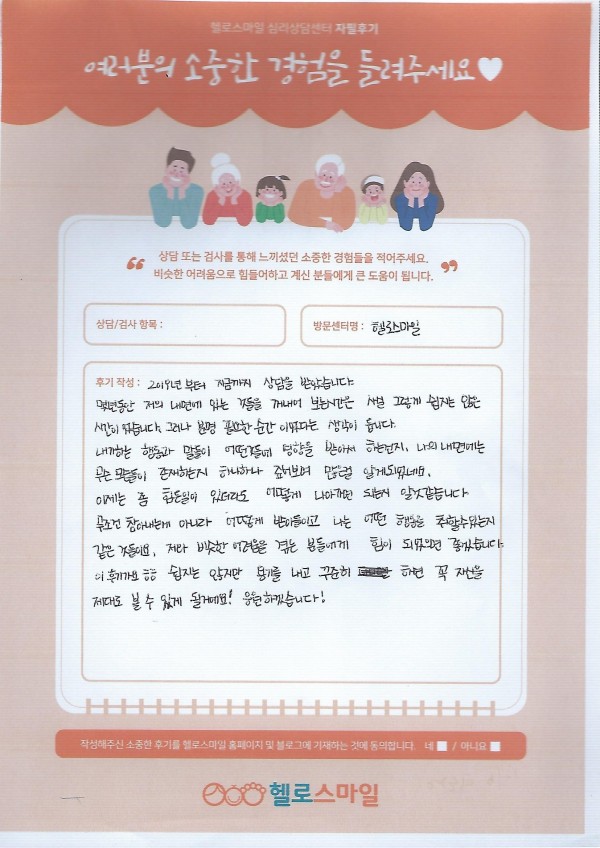 헬로스마일 심리상담센터 자필후기
여러분의 소중한 경험을 들려주세요
상담 또는 검사를 통해 느끼셨던 소중한 경험들을 적어주세요.
비슷한 어려움으로 힘들어하고 계신 분들에게 큰 도움이 됩니다.
상담/검사 항목 :
방문센터명 : 헬로스마일
후기 작성 : 2019년부터 지금까지 상담을 받았습니다
몇년동안 저의 내면에 있는 것들을 꺼내어 보는시간은 사실 그렇게 쉽지는 않은
시간이었습니다. 그러나 분명 필요한 순간이었다는 생각이 듭니다.
내가하는 행동과 말들이 어떤것들에 영향을 받아서 하는건지, 나의 내면에는
무슨 모습들이 존재하는지 하나하나 짚어보며 많은걸 알게되었네요.
이제는 좀 힘든일이 있더라도 어떻게 나아가면 되는지 알것같습니다
무조건 참아내는게 아니라 어떻게 받아들이고 나는 어떤 행동을 취할수있는지
같은 것들이요. 저와 비슷한 어려움을 겪는 분들에게 힘이 되었으면 좋겠습니다.
이 후기가요 ㅎㅎ 쉽지는 않지만 용기를 내고 꾸준히 하면 꼭 자신을
제대로 볼 수 있게 될거에요! 응원하겠습니다!
작성해주신 소중한 후기를 헬로스마일 홈페이지 및 블로그에 기재하는 것에 동의합니다. 네 / 아니요
헬로스마일